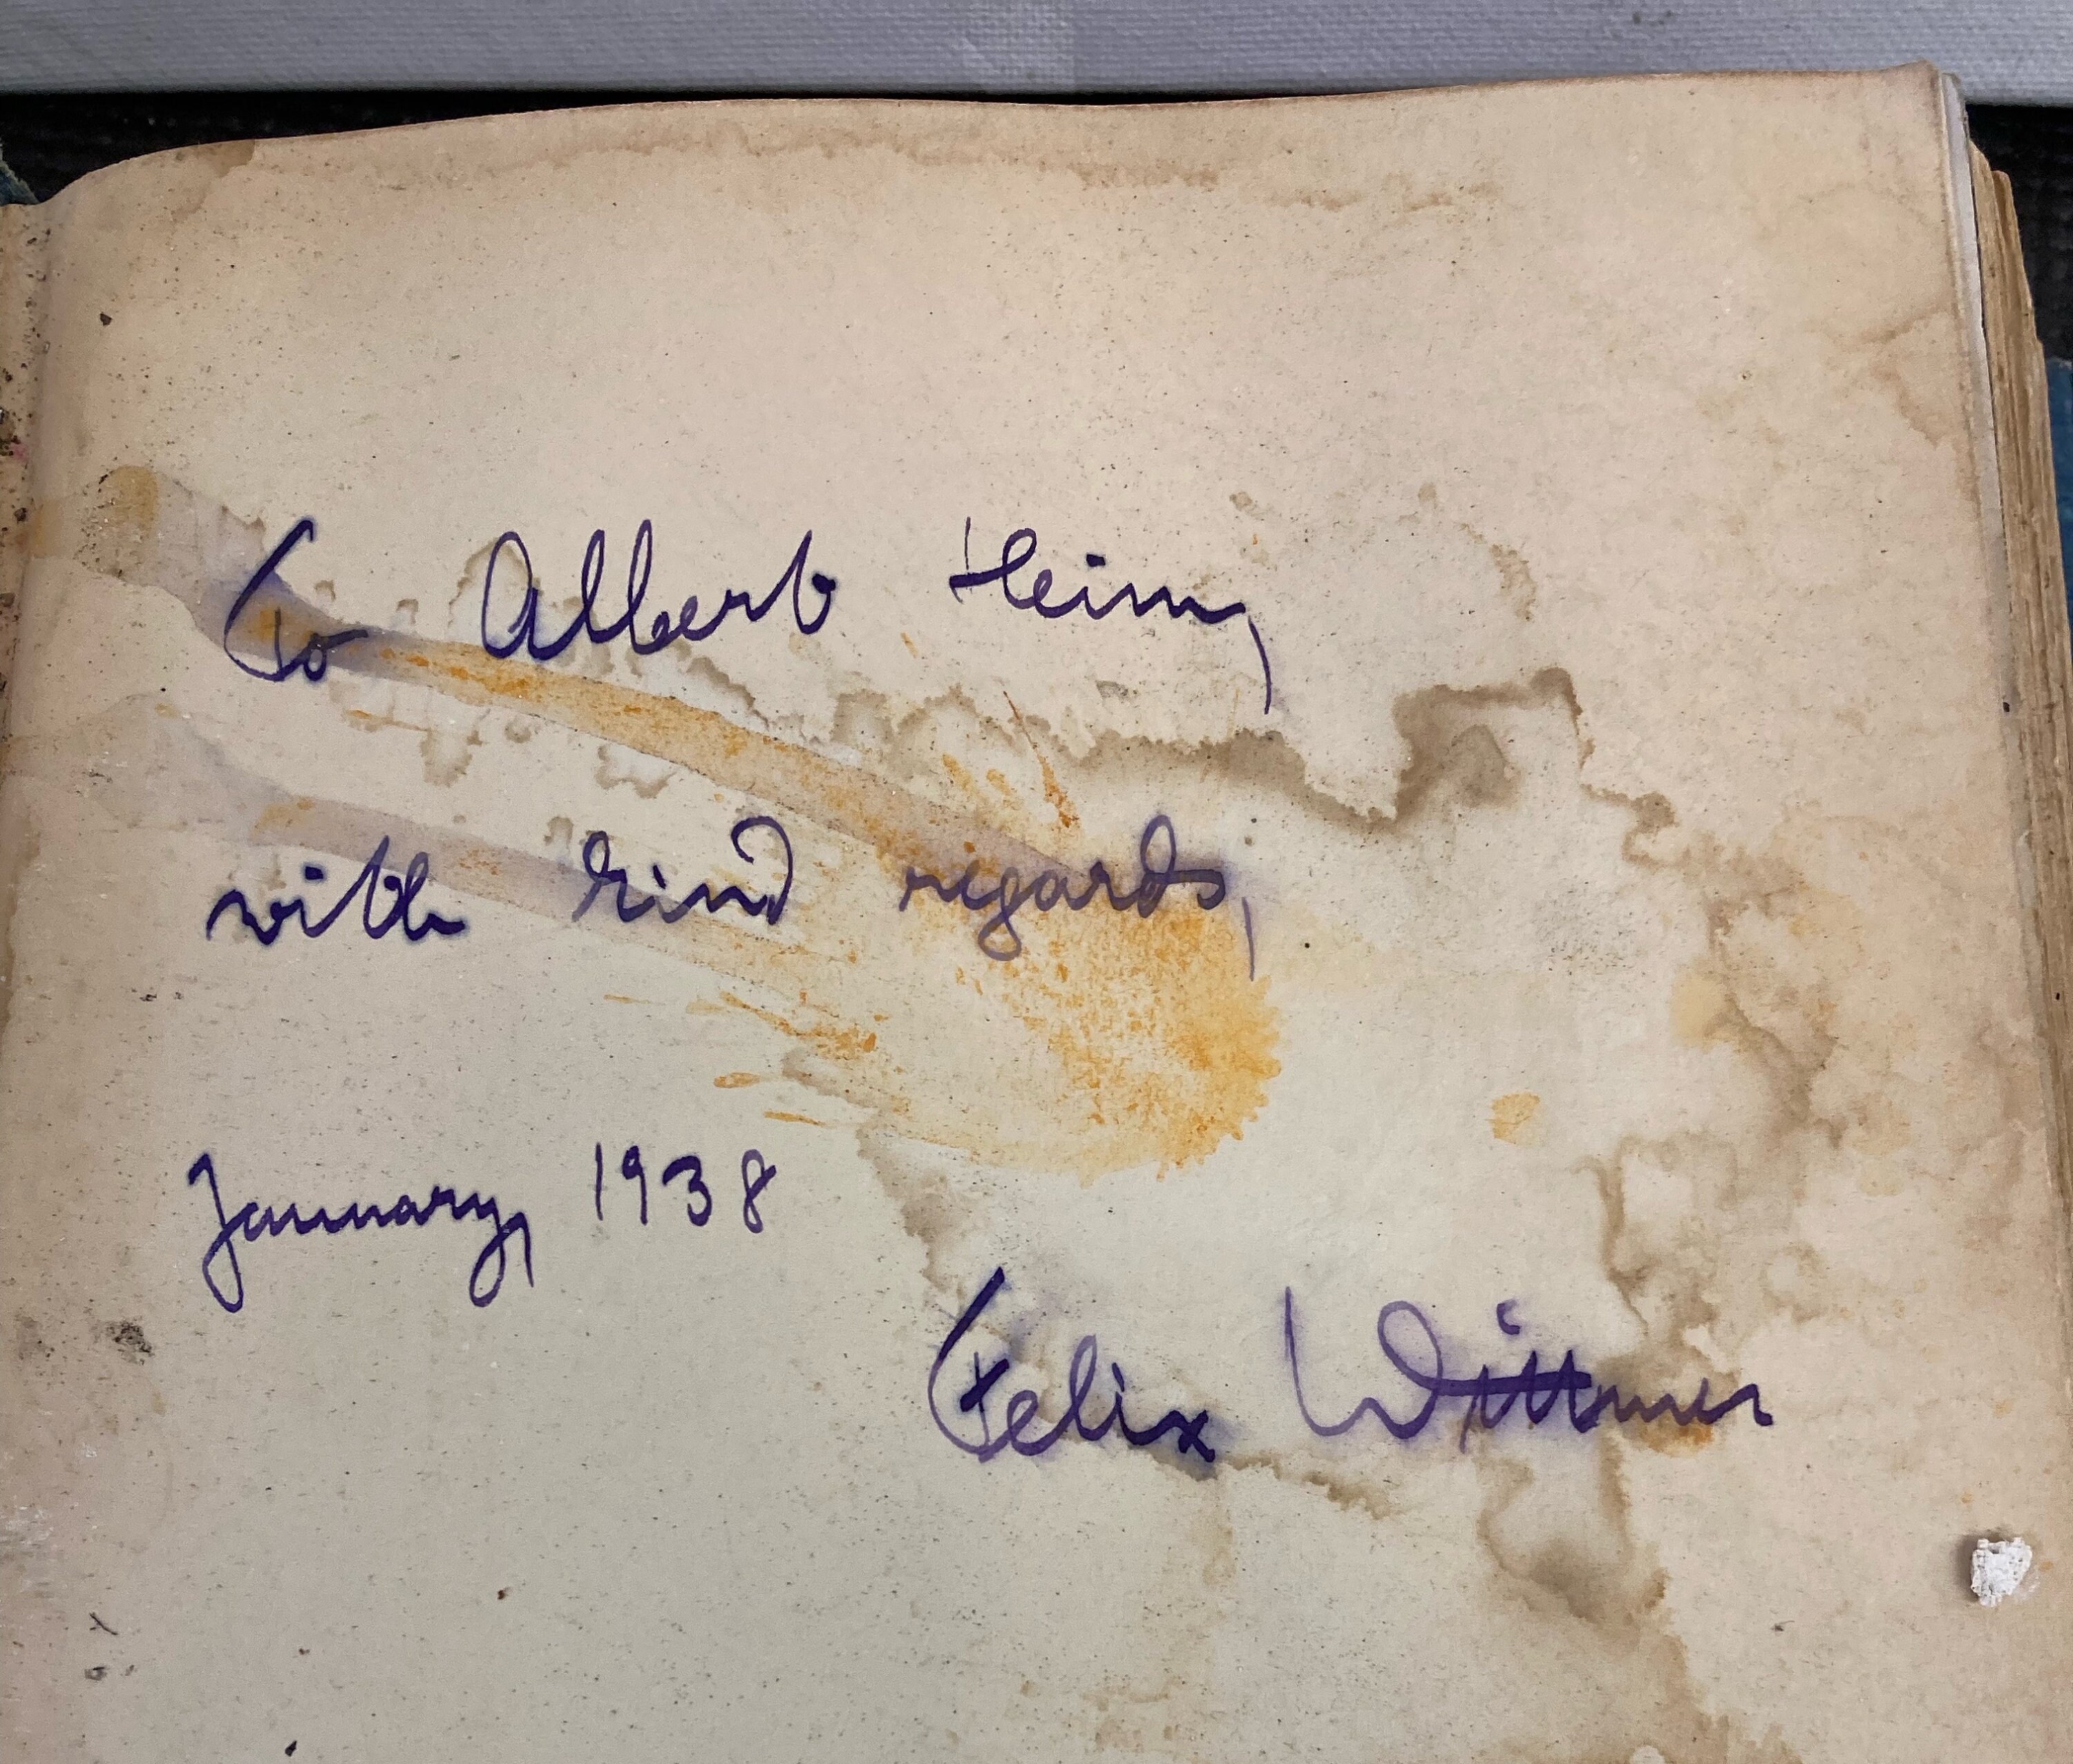 To Albert Heim,
with kind regards,
January, 1938
Felix Wittmer